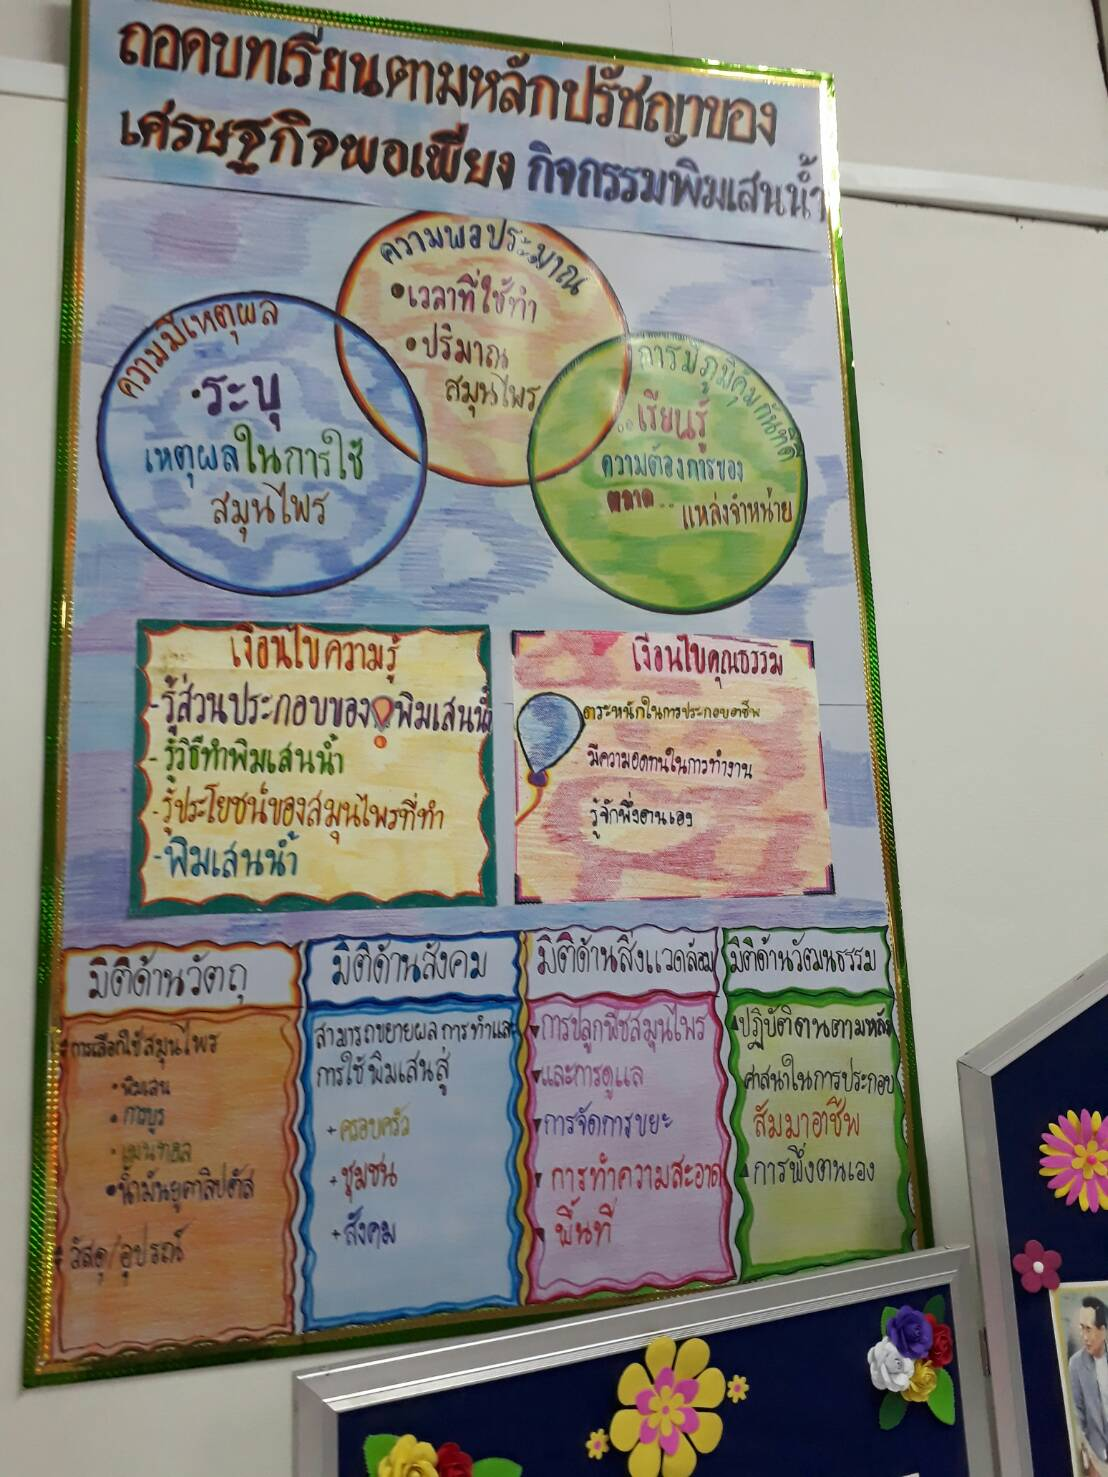 ถอดบทเรียนตามหลักปรัชญาของ
เศรษฐกิจพอเพียง กิจกรรมพิมเสนน้ำ
ความพอประมาณ
•เวลาที่ใช้ทำ
•ปริมาณ
สมุนไพร
ความมีเหตุผล
•ระบุ
เหตุผลในการใช้
สมุนไพร
การมีภูมิคุ้มกันที่ดี
..เรียนรู้
ความต้องการของ
ตลาด.. แหล่งจำหน่าย
เงื่อนไขความรู้
-รู้ส่วนประกอบของพิมเสนน้ำ
-รู้วิธีทำพิมเสนน้ำ
-รู้ประโยชน์ของสมุนไพรที่ทำ
-พิมเสนน้ำ
เงื่อนไขคุณธรรม
ตระหนักในการประกอบอาชีพ
มีความอดทนในการทำงาน
รู้จักพึ่งตนเอง
มิติด้านวัตถุ
การเลือกใช้สมุนไพร
•พิมเสน
•การบูร
•เมนทอล
•น้ำมันยูคาลิปตัส
วัสดุ/อุปรณ์
มิติด้านสังคม
สามารถขยายผลการทำและ
การใช้พิมเสนสู่
+ครอบครัว
+ชุมชน
+สังคม
มิติด้านสิ่งแวดล้อม
การปลูกพืชสมุนไพร
และการดูแล
การจัดการขยะ
การทำความสะอาด
พื้นที่
มิติด้านวัฒนธรรม
ปฏิบัติตนตามหลัก
ศาสนาในการประกอบ
สัมมาอาชีพ
การพึ่งตนเอง